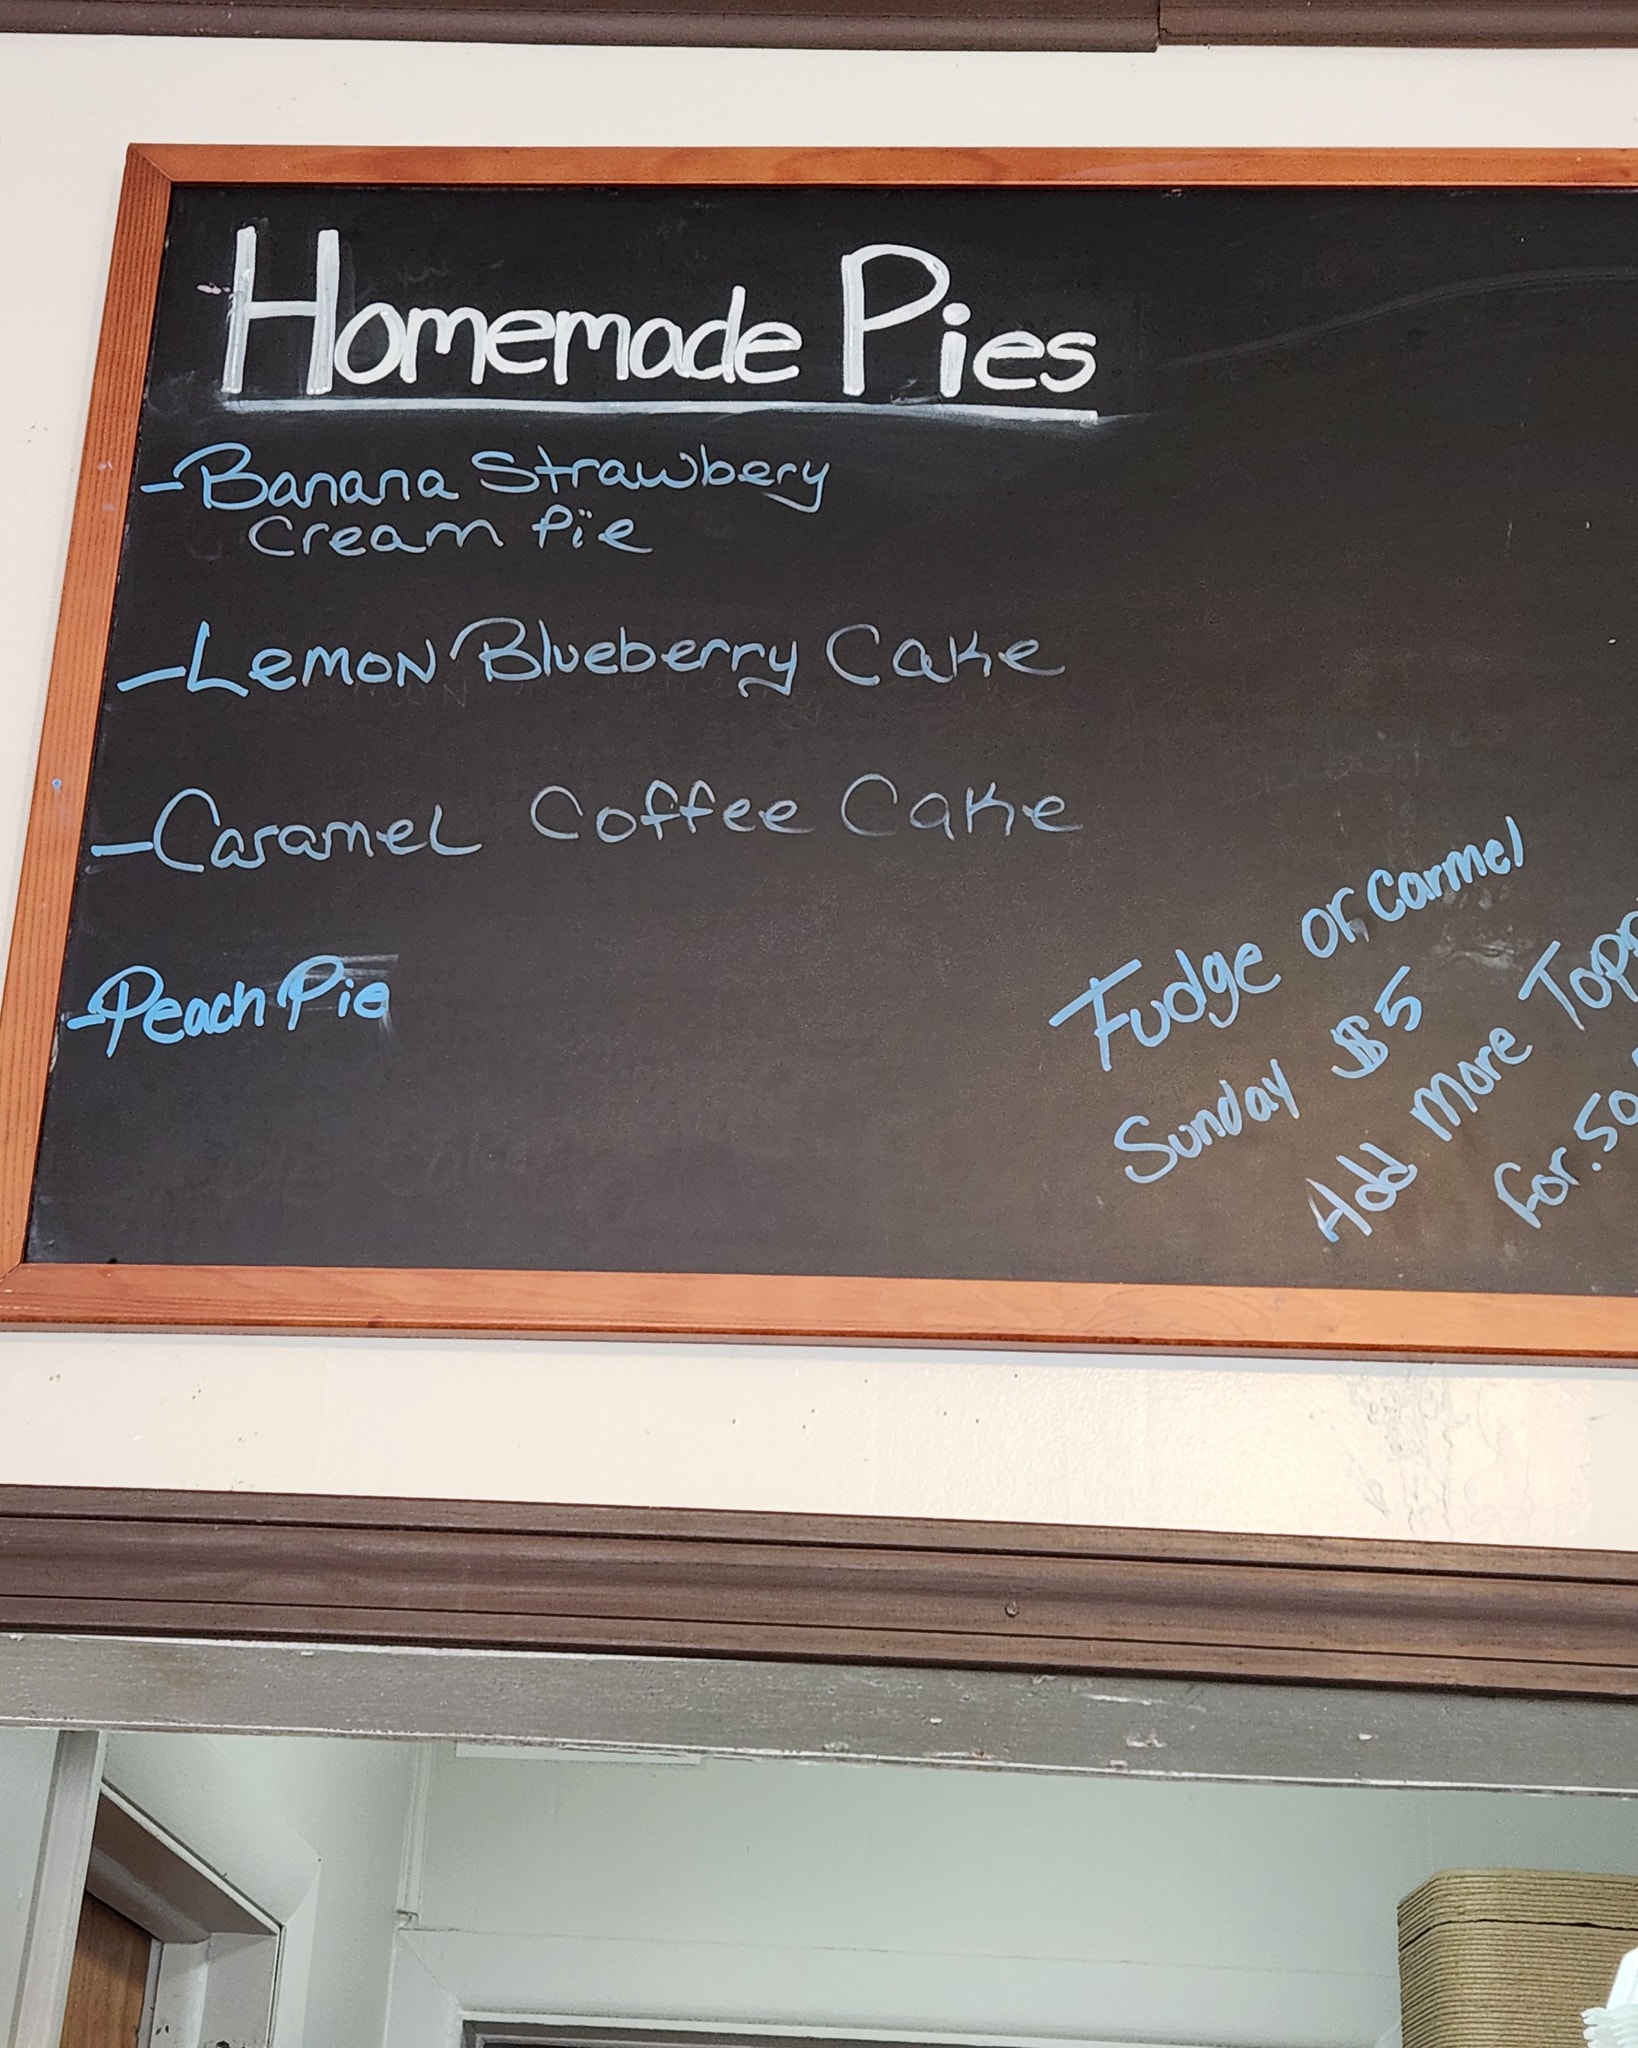 Homemade Pies
- Banana Strawbery
Cream Pie
- Lemon Blueberry Cake
- Caramel Coffee Cake
- Peach Pie
Fudge or Carmel
Sunday $5
Add more Tops
for .50